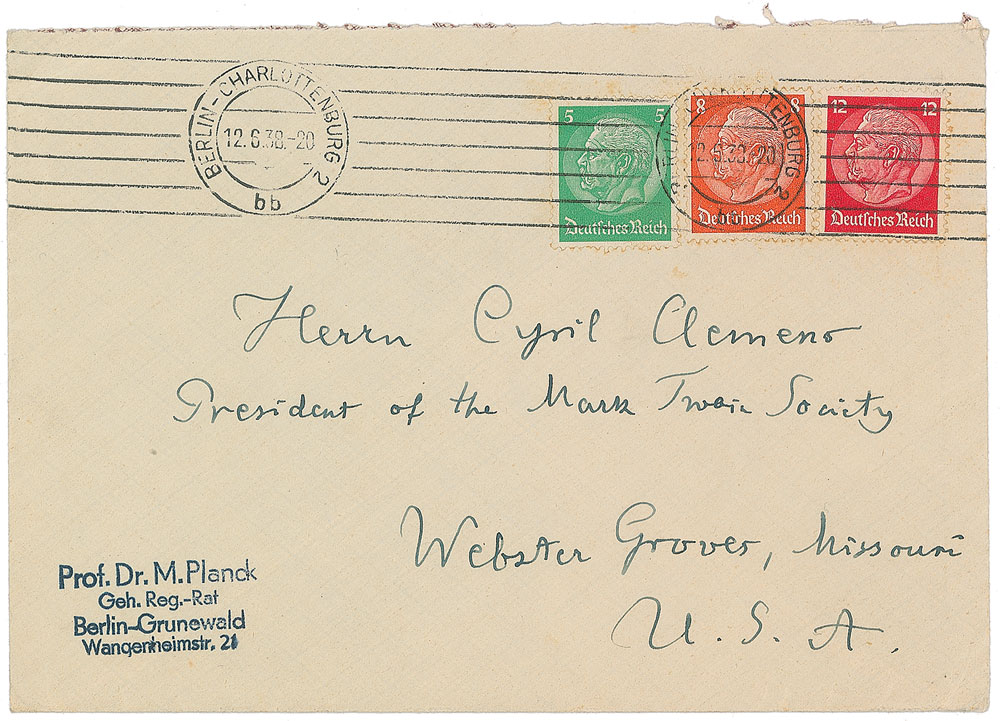 BERLIN-CHARLOTTENBURG 2
12.6.38.-20
bb
5 5
Deutsches Reich
8 8
Deutsches Reich
12 12
Deutsches Reich
Herrn Cyril Clemens
President of the Mark Twain Society
Webster Groves, Missouri
U. S. A.
Prof. Dr. M. Planck
Geh. Reg.-Rat
Berlin-Grunewald
Wangenheimstr. 21